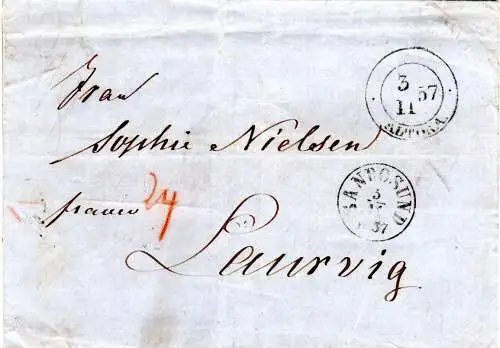 Frau
Sophie Nielsen
franco 24
Laurvig
3
11 57
ALTONA
SANDOSUND
5
57